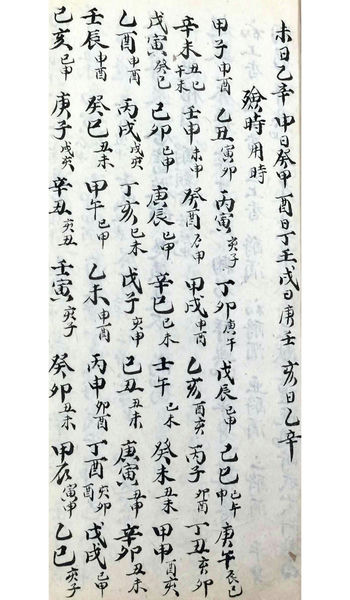 未日乙辛 申日癸甲 酉日丁壬 戌日庚壬 亥日乙辛
殮時用時
甲子申酉 乙丑寅卯 丙寅亥子 丁卯庚午 戊辰巳申 己巳巳午申 庚午辰巳
辛未丑巳午未 壬申未申 癸酉辰申 甲戌申酉 乙亥酉亥 丙子卯酉 丁丑亥卯
戊寅癸巳 己卯巳申 庚辰巳申 辛巳巳未 壬午巳未 癸未丑未 甲申酉亥
乙酉申酉 丙戌戌亥 丁亥巳未 戊子寅申 己丑丑未 庚寅丑申 辛卯丑未
壬辰申酉 癸巳丑未 甲午巳申 乙未申酉 丙申卯酉 丁酉亥卯酉 戊戌巳申
己亥巳申 庚子戌亥 辛丑亥丑 壬寅亥子 癸卯丑未 甲辰寅申 乙巳亥子